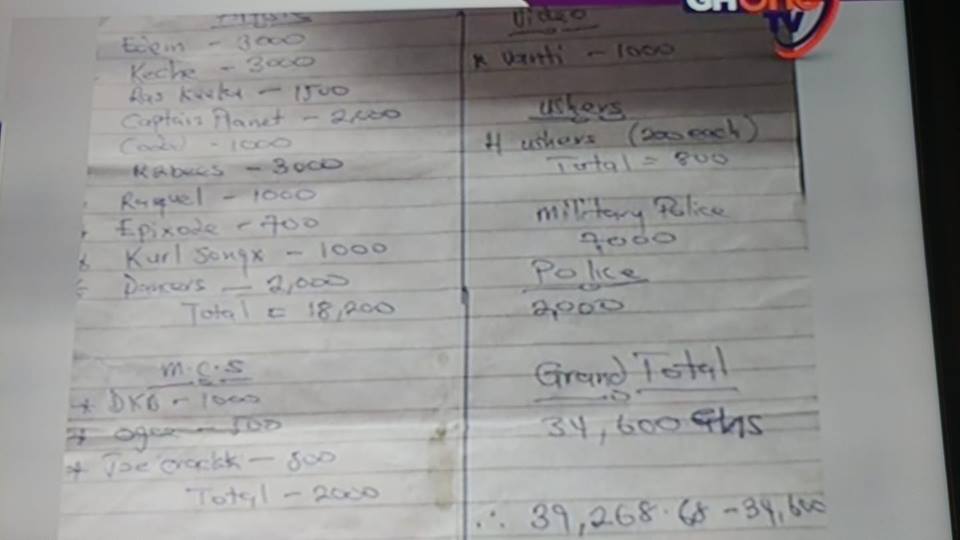 GHONE
TV
Edem - 3000
Keche - 3000
Ras Kuuku - 1500
Captain Planet - 2,000
- 1000
- 3000
Raquel - 1000
Epixode - 700
Kurl Songx - 1000
Dancers - 2,000
Total = 18,200
M.C.S
* DKB - 1000
* Ogee - 500
* Joe Crackk - 500
Total - 2000
Video
* - 1000
Ushers
4 ushers (200 each)
Total = 800
Military Police
7,000
Police
2,000
Grand Total
34,600 Ghs
∴ 39,268.68 - 34,600